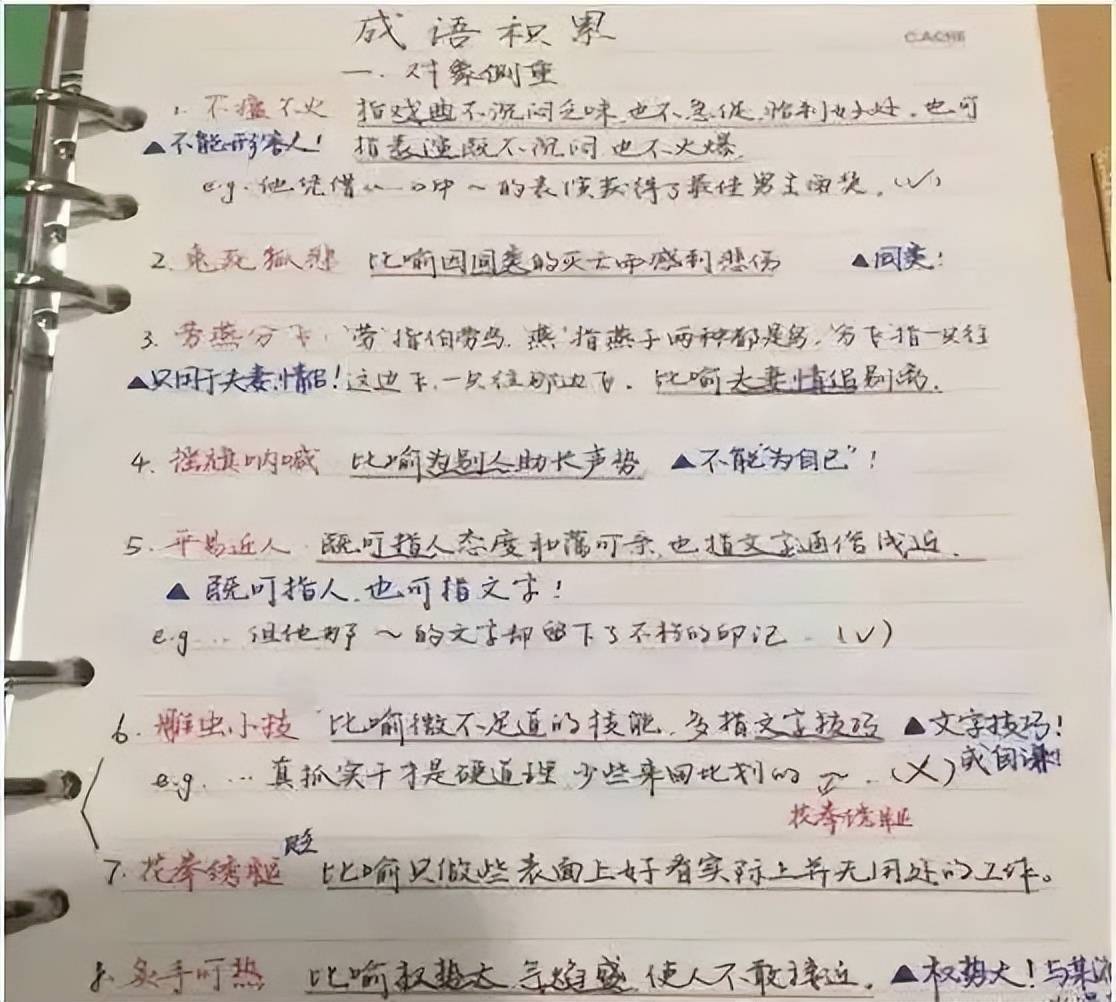 成语积累
CACHE
一. 对象侧重
1. 不瘟不火 指戏曲不沉闷乏味,也不急促,恰到好处,也可
▲不能形容人! 指表演既不沉闷也不火爆.
e.g. 他凭借《…》中~的表演获得了最佳男主角奖. (√)
2. 兔死狐悲 比喻因同类的灭亡而感到悲伤 ▲同类!
3. 劳燕分飞: "劳"指伯劳鸟, "燕"指燕子两种都是鸟, "分飞"指一只往
▲只用于夫妻、情侣! 这边飞,一只往那边飞. 比喻夫妻、情侣别离.
4. 摇旗呐喊 比喻为别人助长声势 ▲不能"为自己"!
5. 平易近人 既可指人态度和蔼可亲,也指文字通俗浅近.
▲ 既可指人,也可指文字!
e.g. … 但他那~的文字却留下了不朽的印记. (√)
6. 雕虫小技 比喻微不足道的技能,多指文字技巧 ▲文字技巧!
或自谦!
e.g. … 真抓实干才是硬道理,少些来回比划的~. (×)
花拳绣腿
贬
7. 花拳绣腿 比喻只做些表面上好看实际上并无用处的工作。
8. 炙手可热 比喻权势大,气焰盛,使人不敢接近. ▲权势大!与某